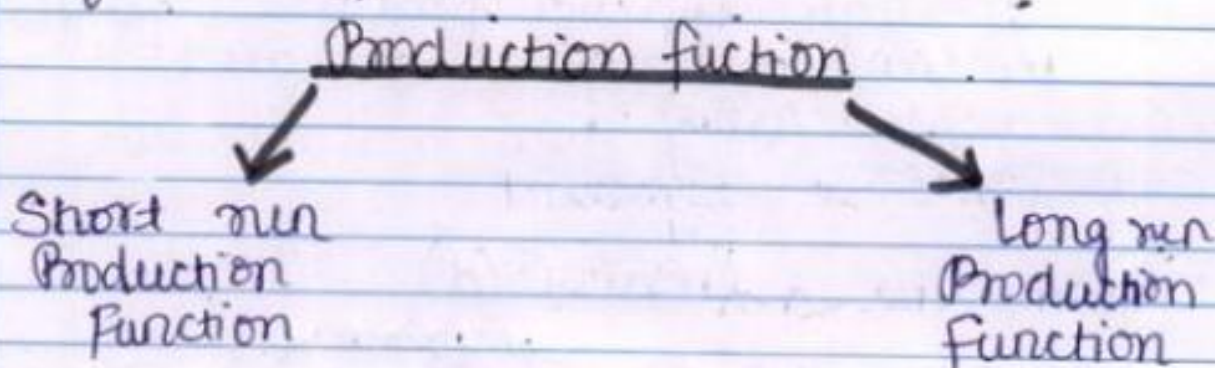 Production fuction
Short run
Production
Function
Long run
Prodution
Function